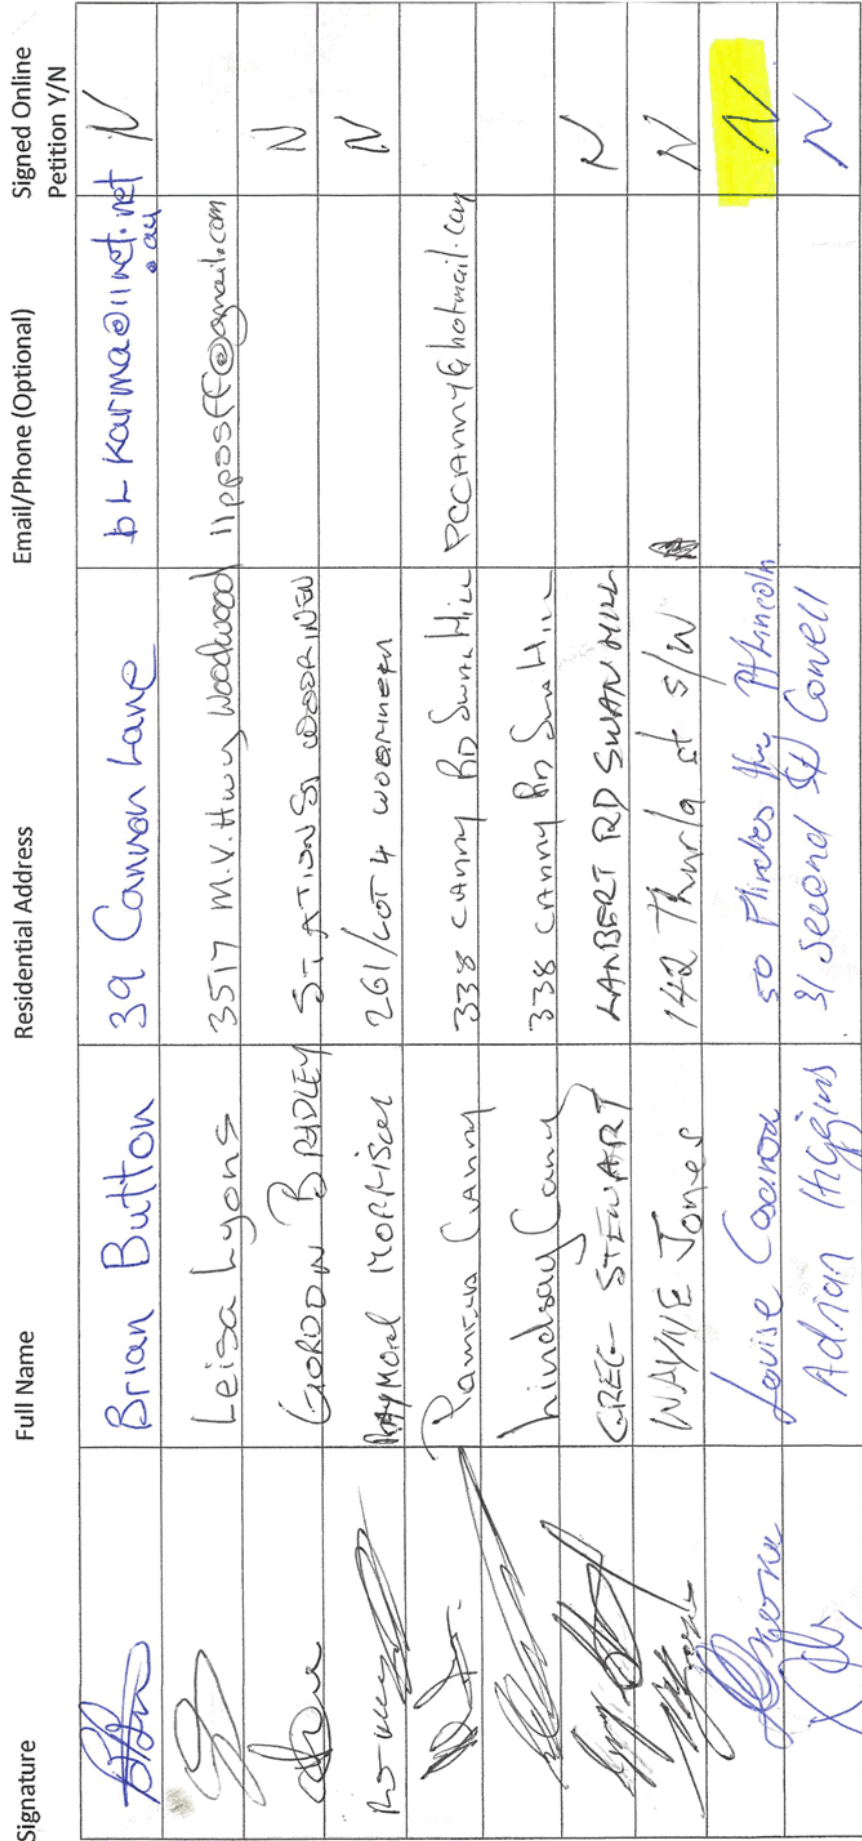 Signature Full Name Residential Address Email/Phone (Optional) Signed Online Petition Y/N
Brian Button 39 Cannon Lane bLKarma@iinet.net.au N
Leisa Lyons 3517 M.V. Hwy Woodwood llpposff@gmail.com
GORDON BRADLEY STATION ST WOORINEN N
RAYMOND MORRISON 261/LOT 4 WOORINEN N
Pamela Canny 338 CANNY RD Swan Hill PCCANNY@hotmail.com
Lindsay Canny 338 CANNY RD Swan Hill
GREG STEWART LAMBERT RD SWAN HILL N
WAYNE Jones 142 Thurla st S/W N
Louise Casanova 50 Flinders Hwy Pt Lincoln N
Adrian Higgins 31 Second St Cowell N